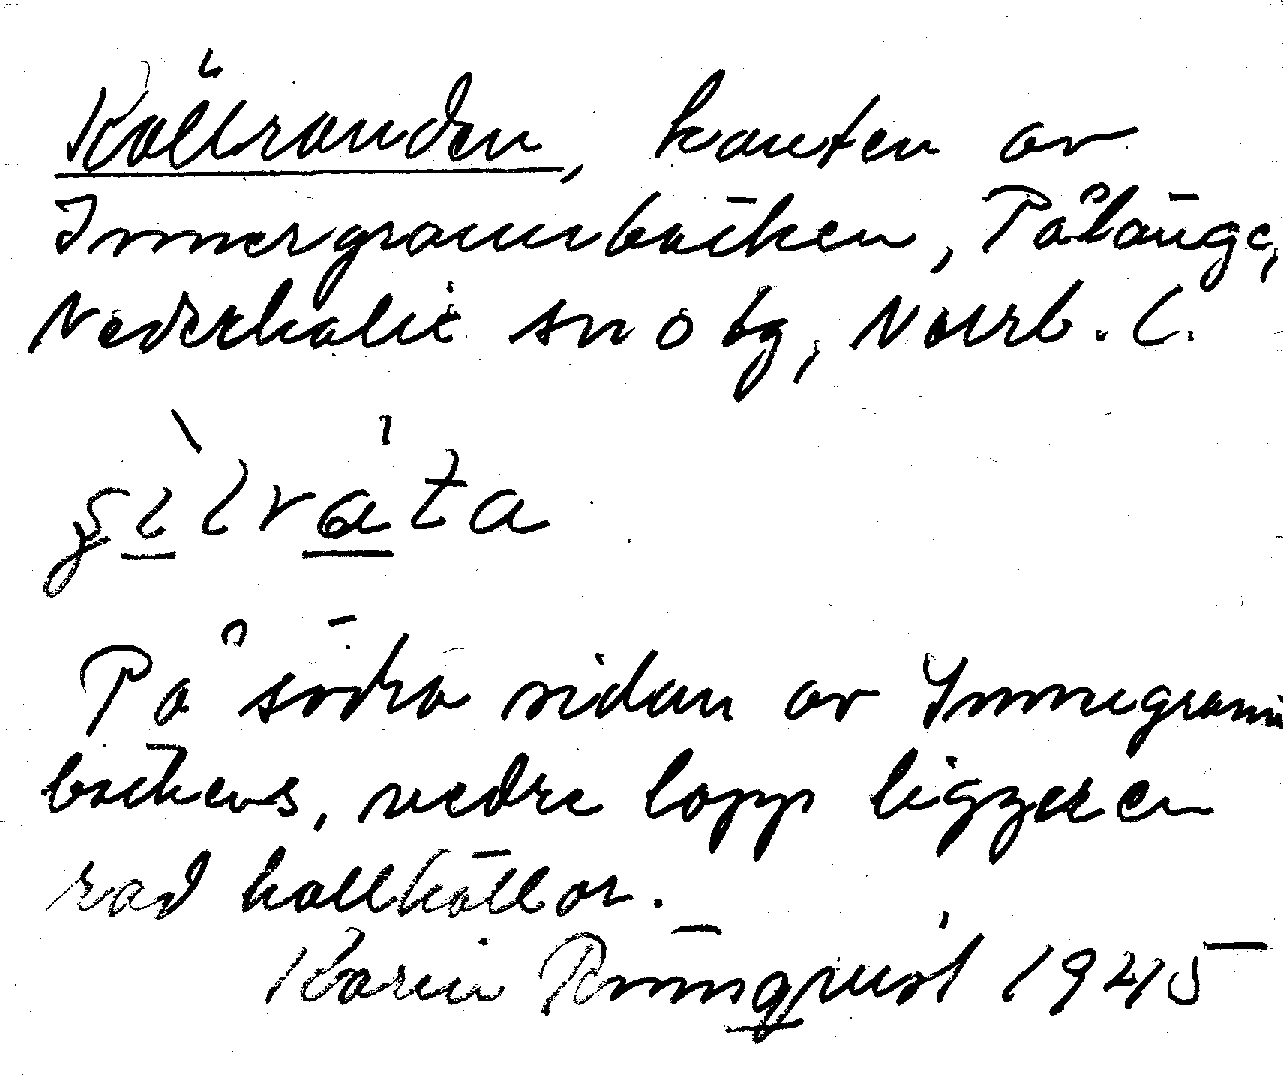 Källranden, kanten av
Innergrannbäcken, Pålänge,
Nederkalix sn o tg, Norrb. l.
På södra sidan av Innegrann
bäckens, nedre lopp ligger en
rad kallkällor.
Karin Rönnqvist 1945